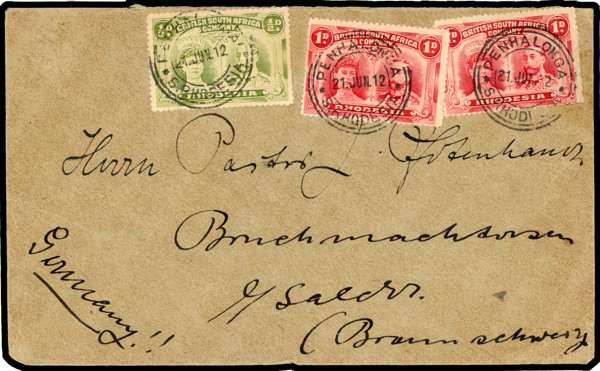 ½D BRITISH SOUTH AFRICA COMPANY ½D
RHODESIA
PENHALONGA
21.JUN.12
S.RHODESIA
1D BRITISH SOUTH AFRICA COMPANY 1D
RHODESIA
PENHALONGA
21.JUN.12
S.RHODESIA
1D BRITISH SOUTH AFRICA COMPANY
RHODESIA
PENHALONGA
21.JUN.12
S.RHODESIA
Herrn Pastor J.
Bruchmachtersen
Germany!!
b/Salder.
(Braunschweig